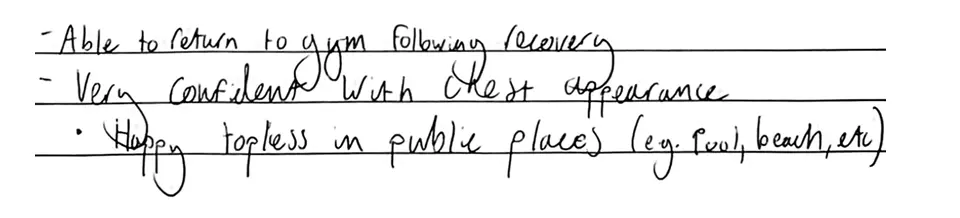 - Able to return to gym following recovery
- Very confident with chest appearance
• Happy topless in public places (eg. pool, beach, etc)